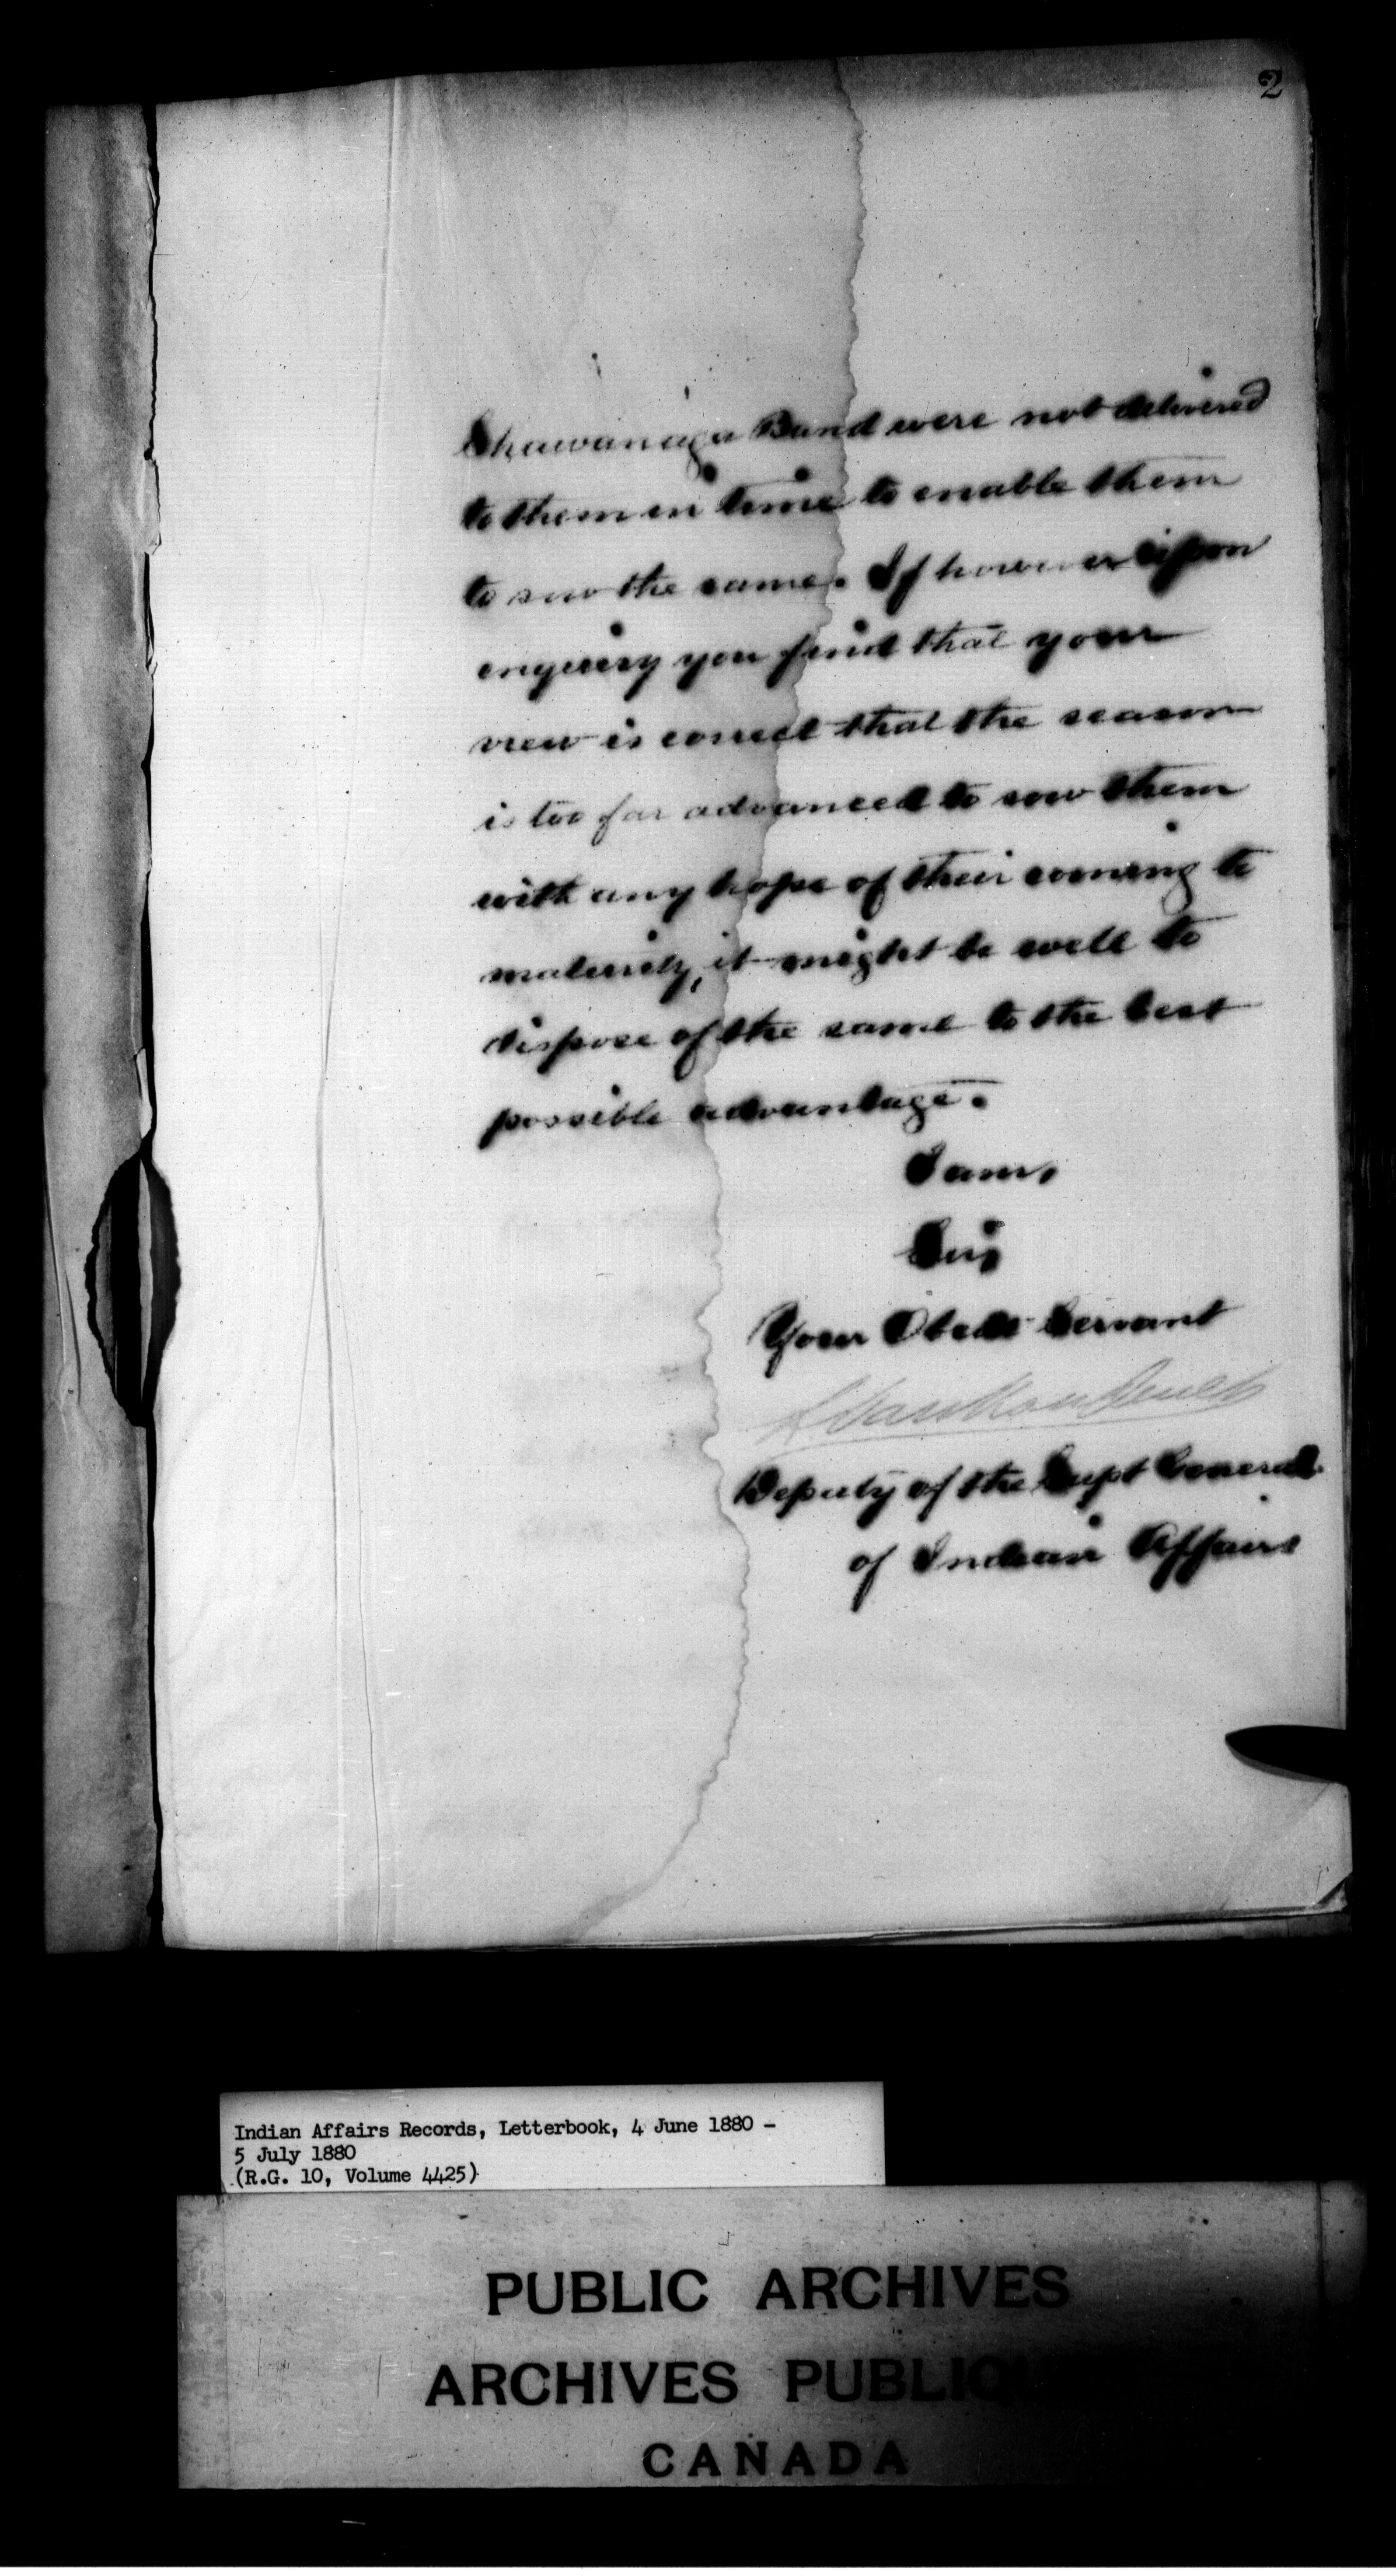 2
Shawanaga Band were not delivered
to them in time to enable them
to sow the same. If however upon
enquiry you find that your
view is correct that the season
is too far advanced to sow them
with any hope of their coming to
maturity, it might be well to
dispose of the same to the best
possible advantage.
I am,
Sir,
Your Obedt Servant
L Vankoughnet
Deputy of the Supt General
of Indian Affairs
Indian Affairs Records, Letterbook, 4 June 1880 -
5 July 1880
(R.G. 10, Volume 4425)
PUBLIC ARCHIVES
ARCHIVES PUBLIQU
CANADA